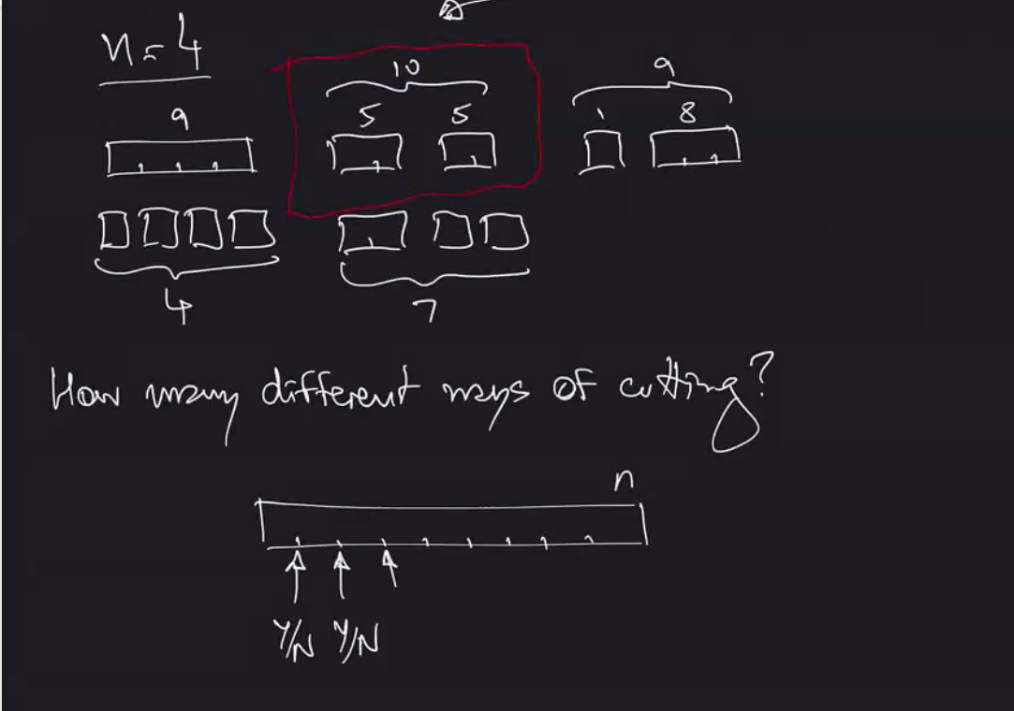 n=4
10
9
9
5 5
1 8
4
7
How many different ways of cutting?
n
Y/N Y/N